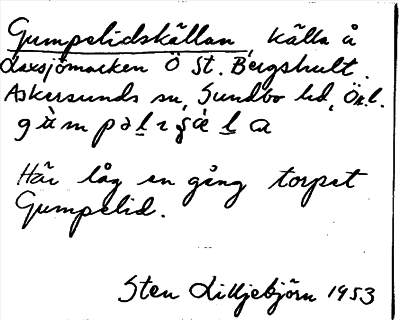 Gumpelidskällan, källa å
Laxsjömarken Ö St. Bergshult.
Askersunds sn, Sundbo hd, Ök.l.
Här låg en gång torpet
Gumpelid.
Sten Lilljebjörn 1953